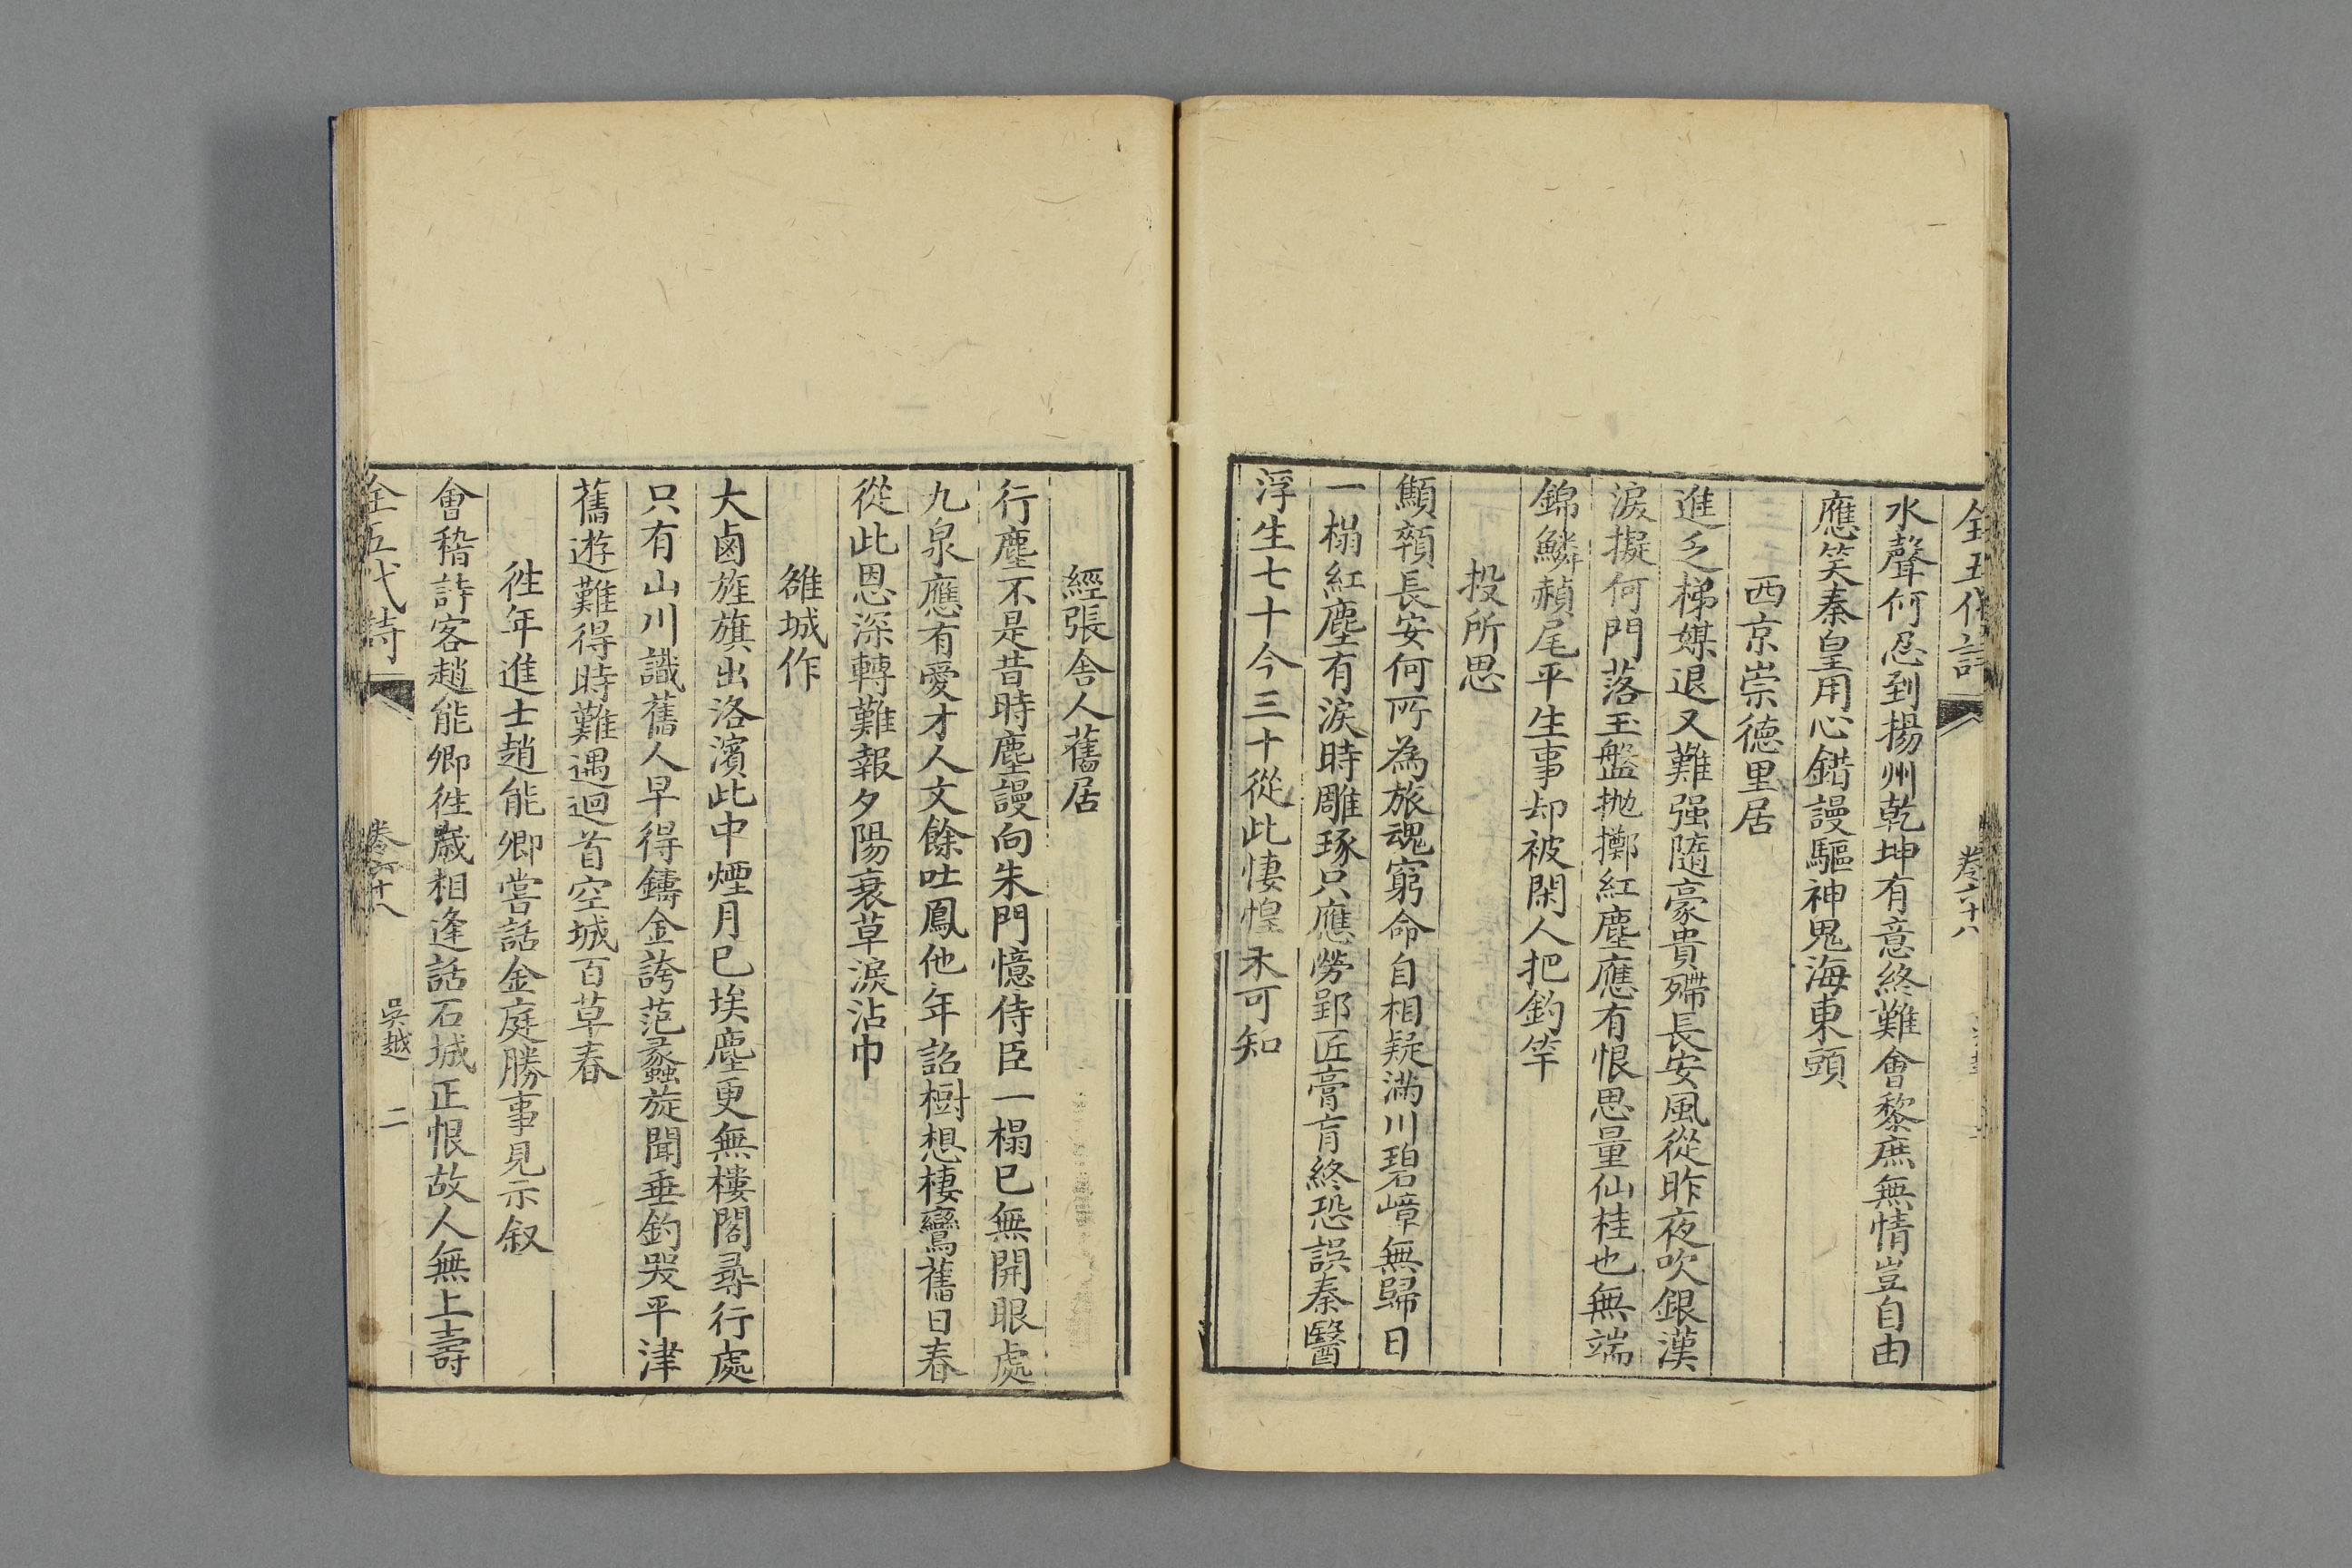 全五代詩 卷六十八
水聲何忍到揚州乾坤有意終難會黎庶無情豈自由
應笑秦皇用心錯謾驅神鬼海東頭
西京崇德里居
進乏梯媒退又難强隨豪貴殢長安風從昨夜吹銀漢
淚擬何門落玉盤抛擲紅塵應有恨思量仙桂也無端
錦鱗赬尾平生事却被閑人把釣竿
投所思
顦顇長安何所為旅魂窮命自相疑滿川碧嶂無歸日
一榻紅塵有淚時雕琢只應勞郢匠膏肓終恐誤秦醫
浮生七十今三十從此悽惶未可知
經張舍人舊居
行塵不是昔時塵謾向朱門憶侍臣一榻已無開眼處
九泉應有愛才人文餘吐鳳他年詔樹想棲鸞舊日春
從此恩深轉難報夕陽衰草淚沾巾
雒城作
大鹵旌旗出洛濱此中煙月已埃塵更無樓閣尋行處
只有山川識舊人早得鑄金誇范蠡旋聞垂釣哭平津
舊遊難得時難遇迴首空城百草春
徃年進士趙能卿嘗話金庭勝事見示叙
會稽詩客趙能卿徃歲相逢話石城正恨故人無上壽
全五代詩 卷六十八 吳越 二